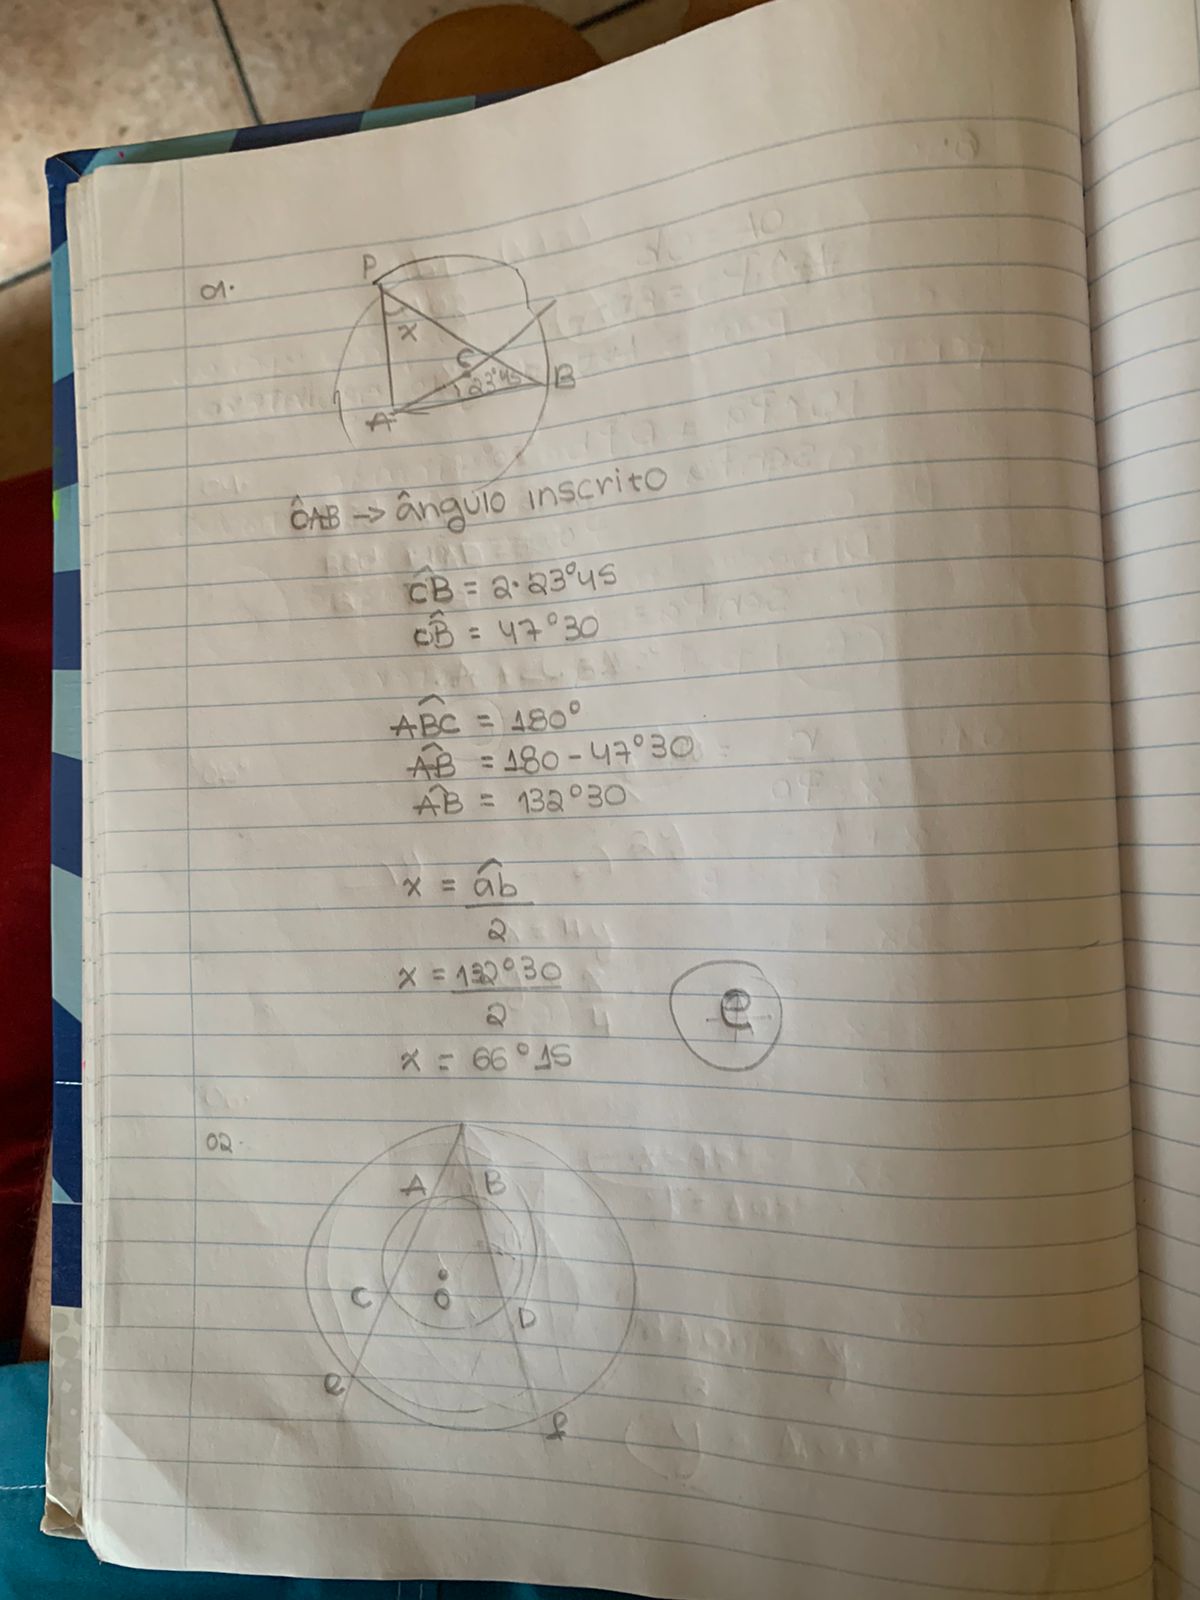 01.
P
x
C
23°45
B
A
ĈAB -> ângulo inscrito
CB = 2·23°45
CB = 47°30
ABC = 180°
AB = 180 - 47°30
AB = 132°30
x = ab
2
x = 132°30
2
e
x = 66°15
02.
A B
C O D
e
f